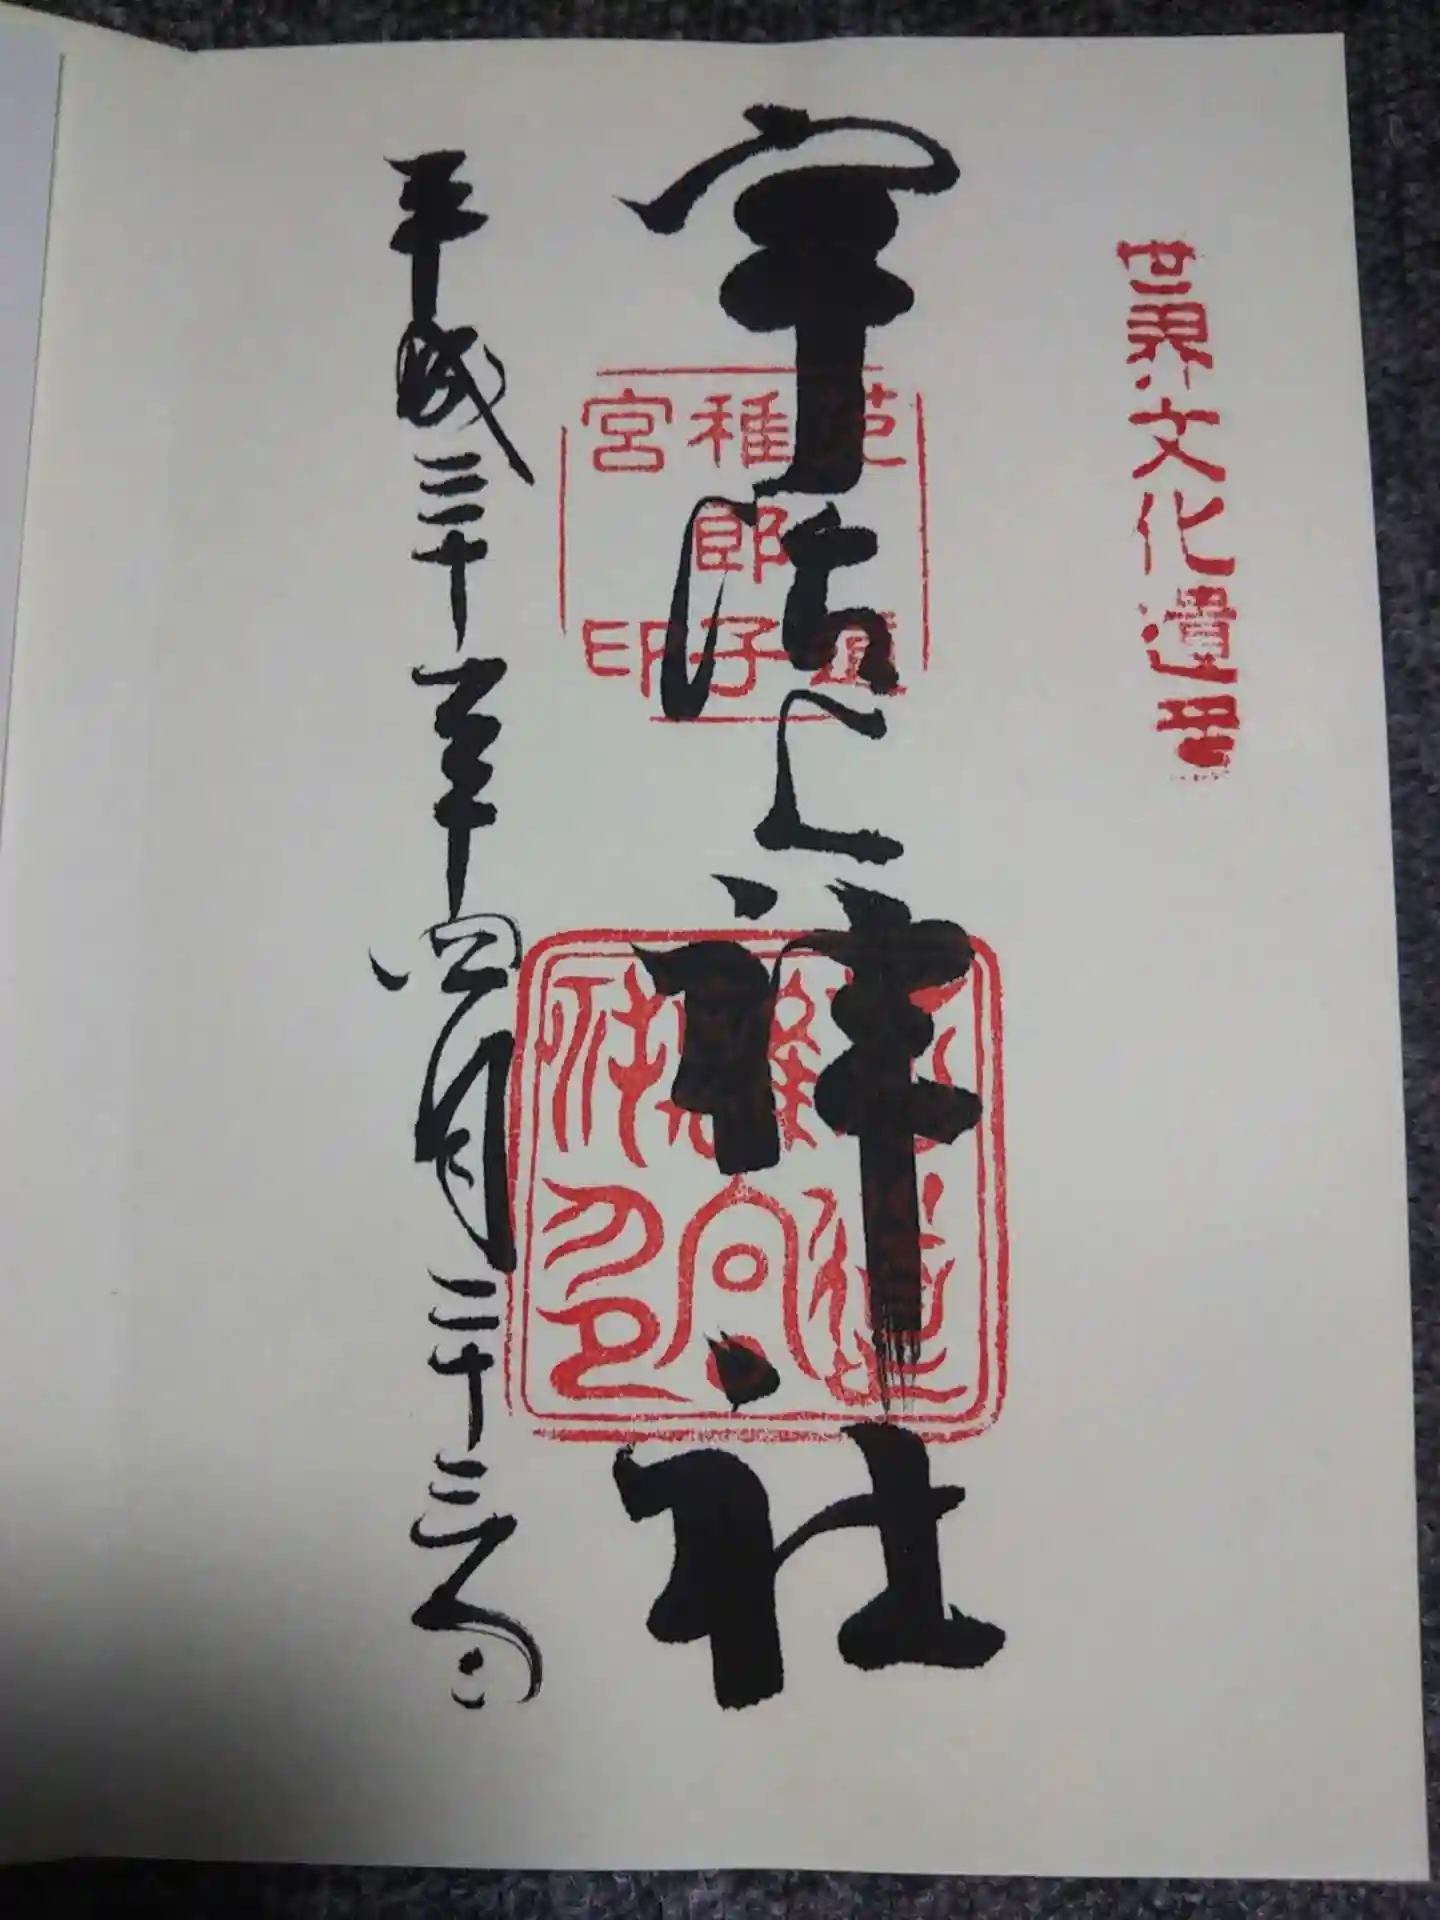 世界文化遺産
宇治上神社
菟道
稚郎子
宮印
平成三十一年四月二十三日